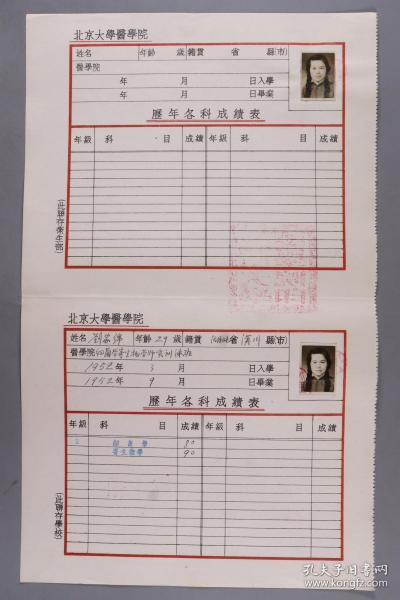 北京大學醫學院
姓名 年齡 歲 籍貫 省 縣(市)
醫學院
年 月 日入學
年 月 日畢業
歷年各科成績表
年級 科 目 成績 年級 科 目 成績
(此聯存衛生部)
北京大學醫學院
姓名 年齡 29 歲 籍貫 省 漢川 縣(市)
醫學院
1952年 3月 日入學
1952年 9月 日畢業
歷年各科成績表
年級 科 目 成績 年級 科 目 成績
80
寄生蟲學 90
(此聯存學校)
孔夫子旧书网
www.kongfz.com